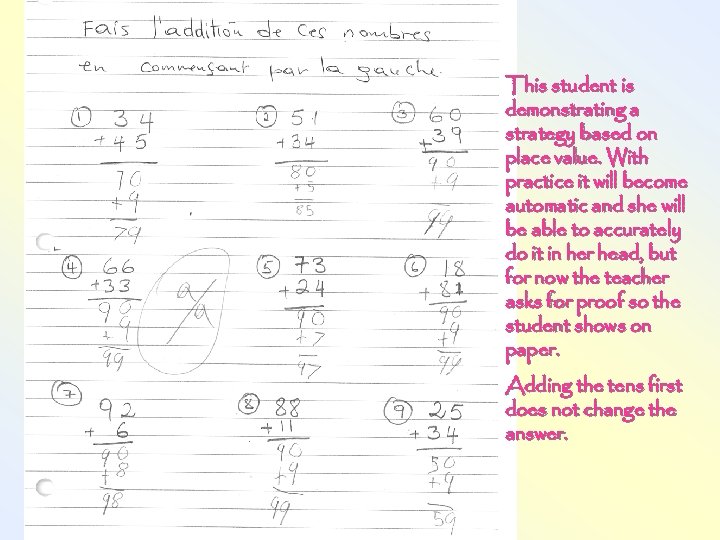 Fais l'addition de ces nombres
en commençant par la gauche.
① 34
+45
70
+9
79
② 51
+34
80
+5
85
③ 60
+39
90
+9
99
④ 66
+33
90
+9
99
a/a
⑤ 73
+24
90
+7
97
⑥ 18
+81
90
+9
99
⑦ 92
+ 6
90
+8
98
⑧ 88
+11
90
+9
99
⑨ 25
+34
50
+9
59
This student is
demonstrating a
strategy based on
place value. With
practice it will become
automatic and she will
be able to accurately
do it in her head, but
for now the teacher
asks for proof so the
student shows on
paper.
Adding the tens first
does not change the
answer.